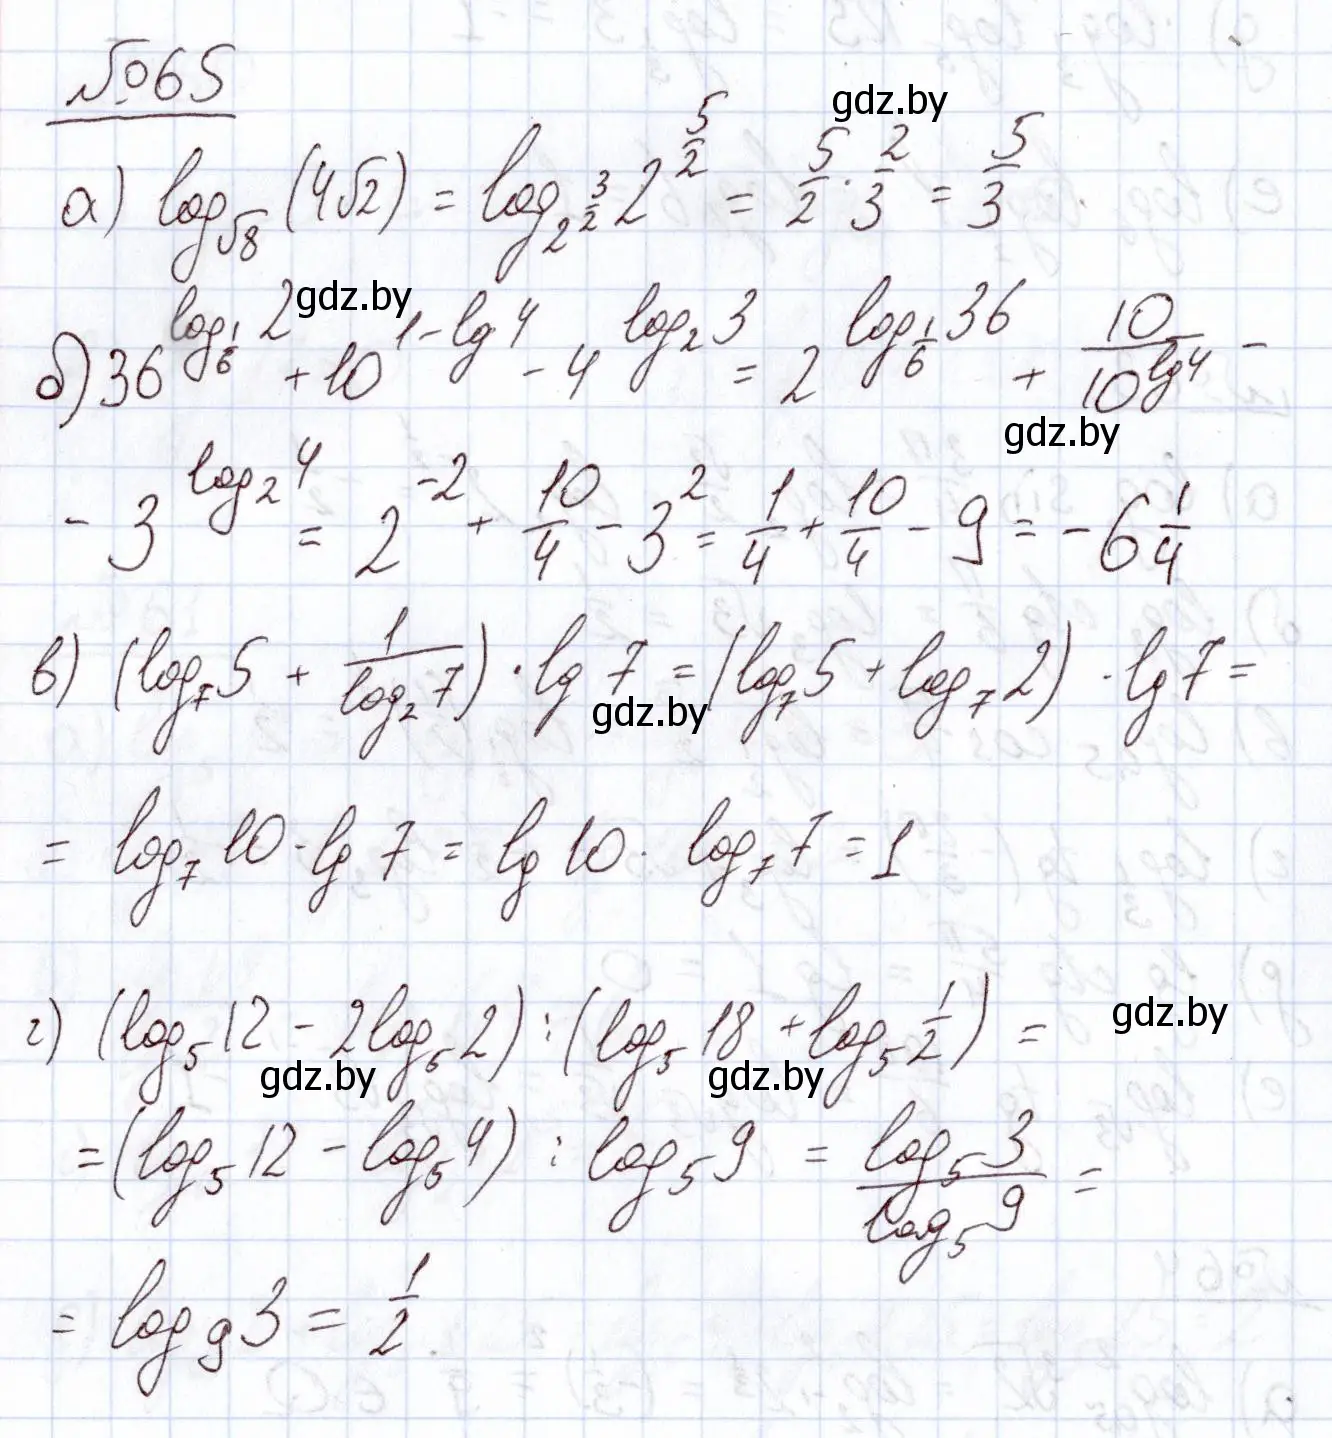 №65
gdz.by
а) log_√8 (4√2) = log_{2^{3/2}} 2^{5/2} = 5/2 · 2/3 = 5/3
gdz.by
б) 36^{log_{1/6} 2} + 10^{1-lg 4} - 4^{log_2 3} = 2^{log_{1/6} 36} + 10/10^{lg 4} -
gdz.by
- 3^{log_2 4} = 2^{-2} + 10/4 - 3^2 = 1/4 + 10/4 - 9 = -6 1/4
в) (log_7 5 + 1/log_2 7) · lg 7 = (log_7 5 + log_7 2) · lg 7 =
gdz.by
= log_7 10 · lg 7 = lg 10 · log_7 7 = 1
г) (log_5 12 - 2log_5 2) : (log_5 18 + log_5 1/2) =
gdz.by
gdz.by gdz.by
= (log_5 12 - log_5 4) : log_5 9 = log_5 3/log_5 9 =
= log_9 3 = 1/2.